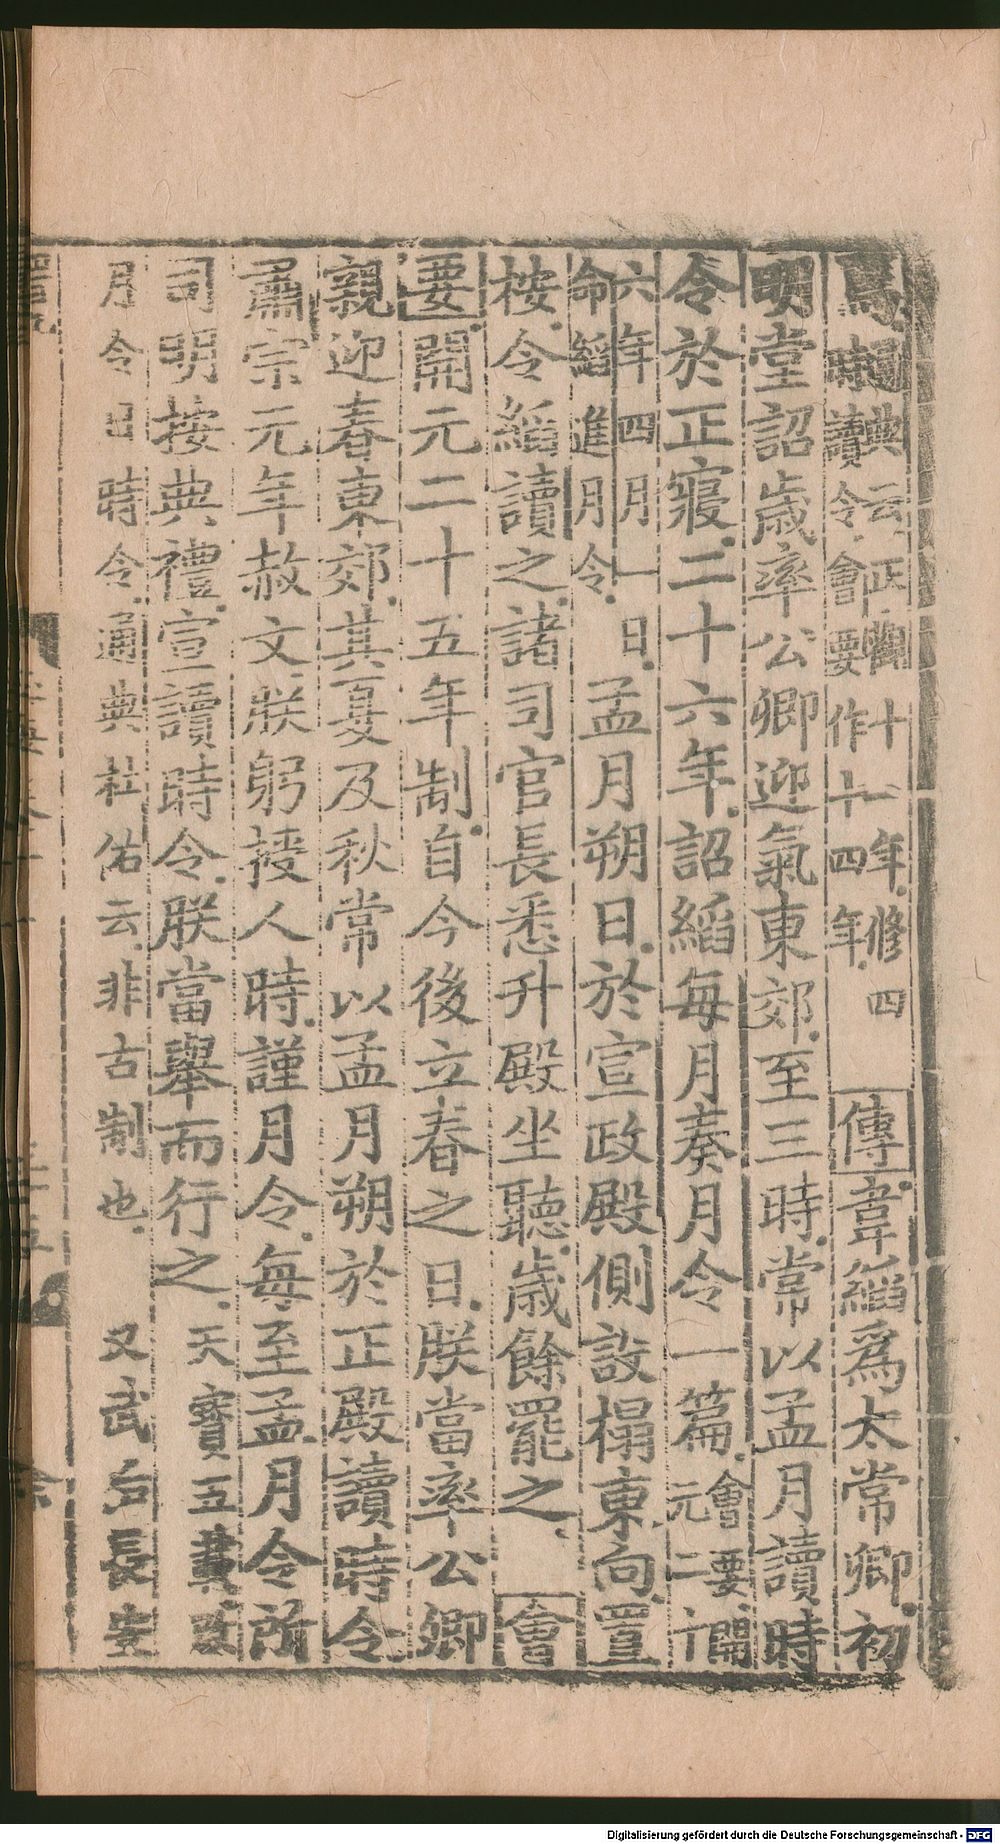 馬 通典云正觀十一年修四
時讀令會要作十四年
傳韋縚爲太常卿初
明堂詔歲率公卿迎氣東郊至三時常以孟月讀時
令於正寢二十六年詔縚每月奏月令一篇 會要開
元二十
六年四月一日
命縚進月令
孟月朔日於宣政殿側設榻東向置
按令縚讀之諸司官長悉升殿坐聽歲餘罷之 會
要開元二十五年制自今後立春之日朕當率公卿
親迎春東郊其夏及秋常以孟月朔於正殿讀時令
肅宗元年赦文朕躬授人時謹月令每至孟月令所
司明按典禮宣讀時令朕當舉而行之 天寶五載改
月令曰時令通典杜佑云非古制也 又武后長安
Digitalisierung gefördert durch die Deutsche Forschungsgemeinschaft - DFG